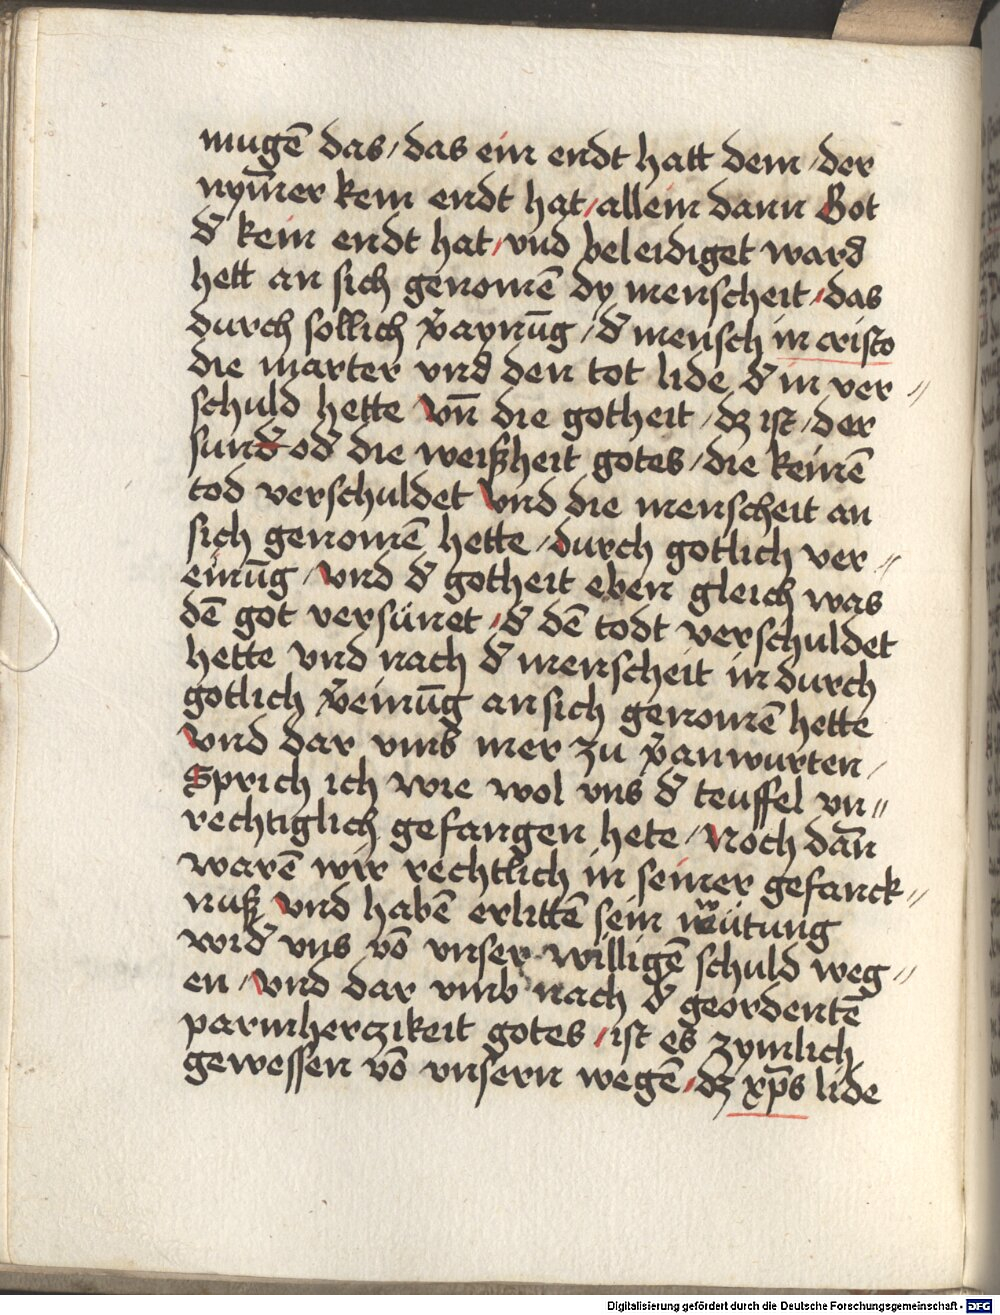 mugē das / das ein endt hatt dem / der
nym̄er kein endt hat / allein dann Got
d̄ kein endt hat / vnd beleidiget ward
hett an sich genomē dy menscheit / das
durch sollich v̄aynūg / d̄ mensch in cristo
die marter vnd den tot lide d̄ in ver〃
schuld hette Vn̄ die gotheit / dz ist / der
sun od̄ die weißheit gotes / die keinē
tod verschuldet Vnd die menscheit an
sich genomē hette / durch gotlich ver〃
einūg / Vnd d̄ gotheit eben gleich was
dē got versünet / d̄ dē todt verschuldet
hette vnd nach d̄ menscheit in durch
gotlich v̄einūg an sich genomē hette
Vnd dar vmb mer zu v̄anwurten /
Sprich ich wie wol vns d̄ teuffel vn〃
rechtiglich gefangen hete / Noch dan̄
warē wir rechtlich in seiner gefanck〃
nuß Vnd habē erlittē sein wütung
wid̄ vns vō vnser willigē schuld weg〃
en / Vnd dar vmb nach d̄ geordentē
parmherczikeit gotes / ist es zymlich
gewessen vō vnsern wegē / dz xp̄s lide
Digitalisierung gefördert durch die Deutsche Forschungsgemeinschaft - DFG